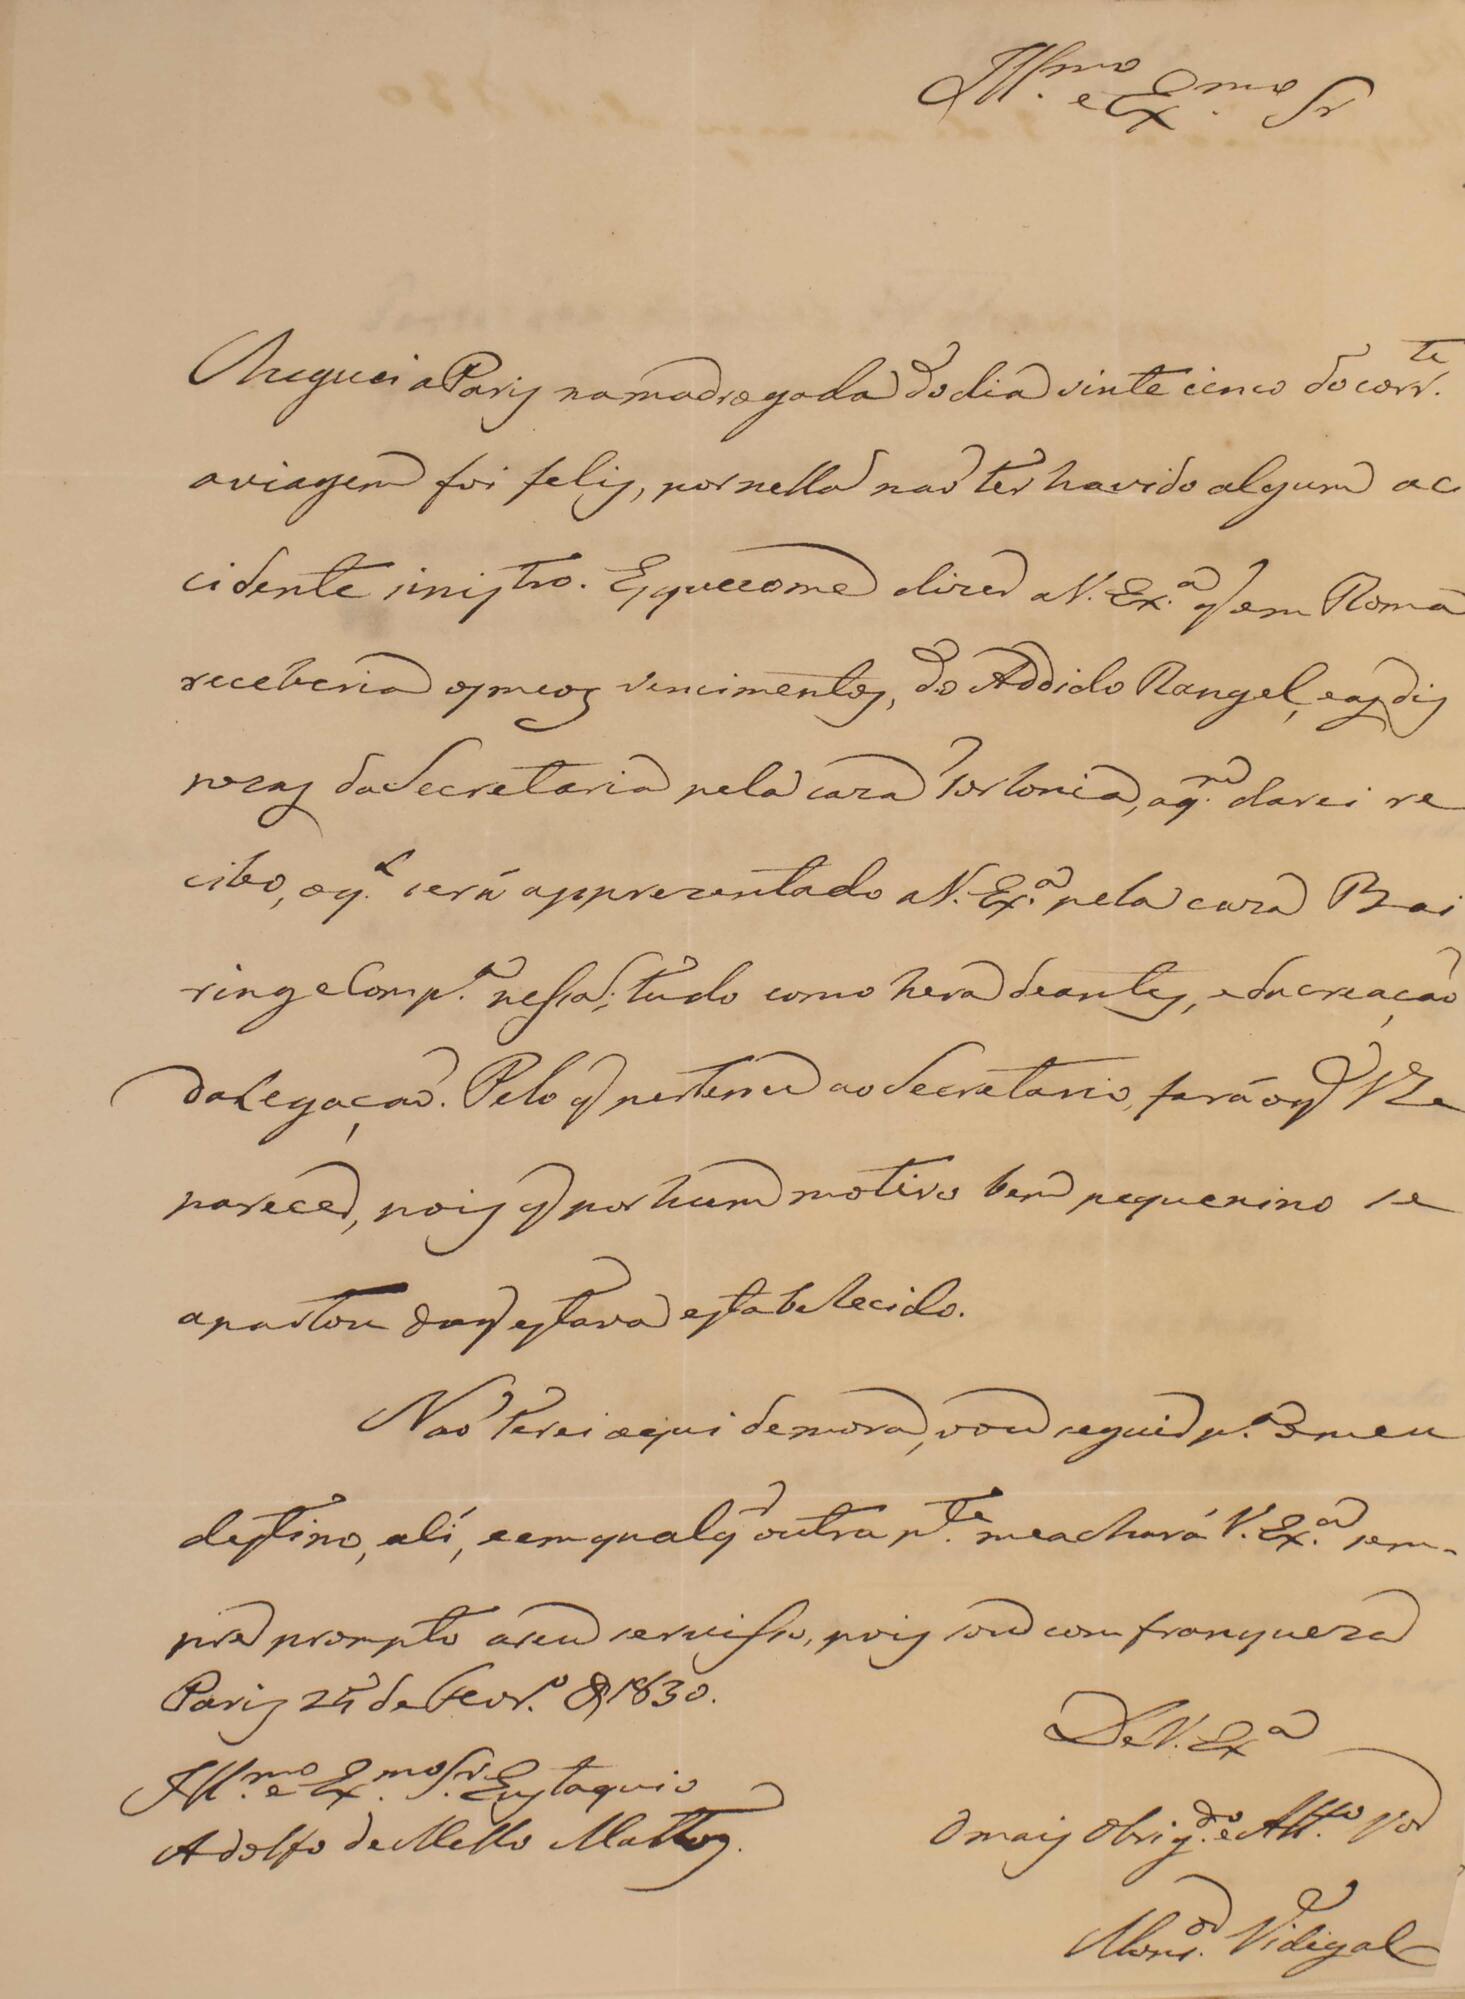 Ill.mo e Ex.mo Sr
Cheguei a Paris na madrogada do dia vinte cinco do corr.te
a viagem foi felis, por nella naõ ter havido algum ac
cidente sinistro. Esqueceome dizer a V. Ex.a q em Roma
receberia os meos vencimentos, do Addido Rangel, e as dis
pozas da Secretaria pela caza Torlonia, a q.m darei re
cibo, o q.l será apprezentado a V. Ex.a pela caza Bai
ring e Comp.a nessa; tudo como hera de antes, e da creaçaõ
da Legaçaõ. Pelo q pertence ao Secretario, fará o q V Ex
parecer, pois q por hum motivo bem pequenino se
apartou do q estava estabelecido.
Naõ terei aqui demora, vou seguir p.a o meu
destino, ali, e em qualq outra p.te me achará V. Ex.a sem-
pre prompto a seu servisso, pois sou com franqueza
Paris 25 de Fevr.o de 1830.
De V. Ex.a
Ill.mo e Ex.mo Sr. Eustaquio
Adolfo de Mello Mattos.
O mais Obrig.do e Att.to
Mons.or Vidigal